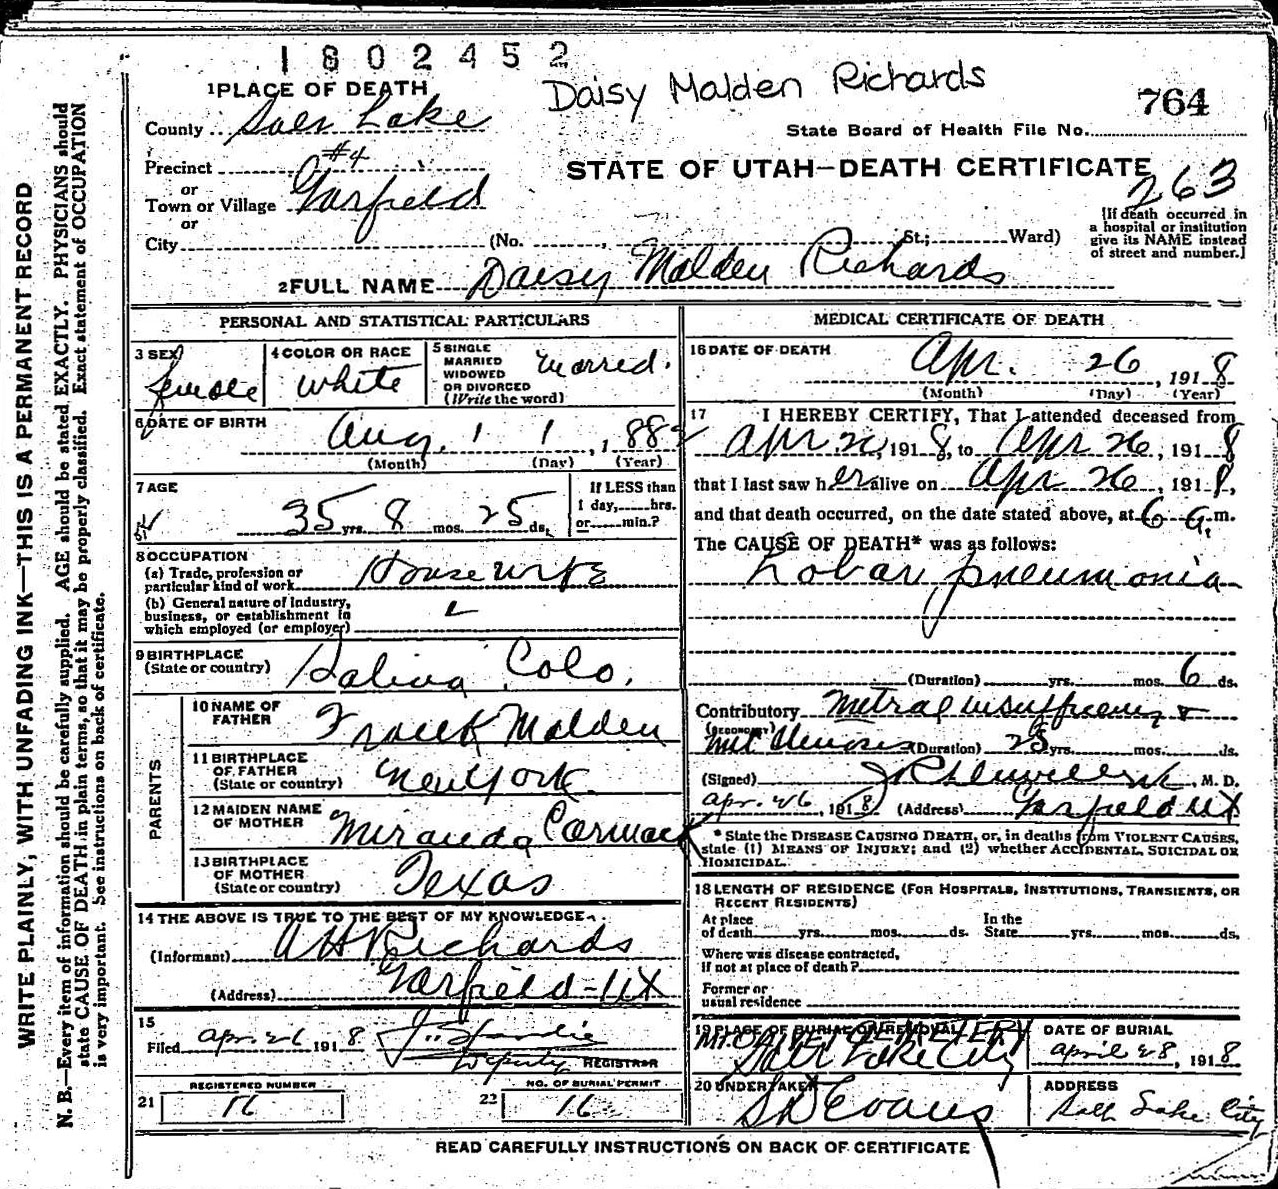 1802452
Daisy Malden Richards
764
1 PLACE OF DEATH
County Salt Lake
State Board of Health File No.
Precinct #4
STATE OF UTAH—DEATH CERTIFICATE
263
or
Town or Village Garfield
or
City (No. , St.; Ward)
[If death occurred in
a hospital or institution
give its NAME instead
of street and number.]
2 FULL NAME Daisy Malden Richards
PERSONAL AND STATISTICAL PARTICULARS
3 SEX female
4 COLOR OR RACE white
5 SINGLE
MARRIED
WIDOWED
OR DIVORCED
(Write the word)
Marred.
6 DATE OF BIRTH
Aug. 1 1, 188
(Month) (Day) (Year)
7 AGE
35 yrs. 8 mos. 25 ds.
If LESS than
1 day, hrs.
or min.?
8 OCCUPATION
(a) Trade, profession or
particular kind of work Housewife
(b) General nature of industry,
business, or establishment in
which employed (or employer)
9 BIRTHPLACE
(State or country) Salina Colo.
PARENTS
10 NAME OF
FATHER Frank Malden
11 BIRTHPLACE
OF FATHER
(State or country) New York.
12 MAIDEN NAME
OF MOTHER Miranda Cormack
13 BIRTHPLACE
OF MOTHER
(State or country) Texas
14 THE ABOVE IS TRUE TO THE BEST OF MY KNOWLEDGE
(Informant) A H Richards
(Address) Garfield-UT
15
Filed Apr. 26 1918
Deputy REGISTRAR
REGISTERED NUMBER
21 16
NO. OF BURIAL PERMIT
22 16
MEDICAL CERTIFICATE OF DEATH
16 DATE OF DEATH
Apr. 26, 1918
(Month) (Day) (Year)
17 I HEREBY CERTIFY, That I attended deceased from
Apr. 26, 1918, to Apr 26, 1918
that I last saw her alive on Apr 26, 1918,
and that death occurred, on the date stated above, at 6 a.m.
The CAUSE OF DEATH* was as follows:
Lobar pneumonia
(Duration) yrs. mos. 6 ds.
Contributory Mitral insufficiency &
(SECONDARY)
Mit Stenosis (Duration) 25 yrs. mos. ds.
(Signed) M. D.
Apr. 26, 1918 (Address) Garfield UT
* State the DISEASE CAUSING DEATH, or, in deaths from VIOLENT CAUSES,
state (1) MEANS OF INJURY; and (2) whether ACCIDENTAL, SUICIDAL OR
HOMICIDAL.
18 LENGTH OF RESIDENCE (FOR HOSPITALS, INSTITUTIONS, TRANSIENTS, OR
RECENT RESIDENTS)
At place
of death yrs. mos. ds.
In the
State yrs. mos. ds.
Where was disease contracted,
if not at place of death?
Former or
usual residence
19 PLACE OF BURIAL OR REMOVAL
MT. OLIVET CEMETERY
Salt Lake City
DATE OF BURIAL
April 28, 1918
20 UNDERTAKER
S D Evans
ADDRESS
Salt Lake City
READ CAREFULLY INSTRUCTIONS ON BACK OF CERTIFICATE
WRITE PLAINLY, WITH UNFADING INK—THIS IS A PERMANENT RECORD
N. B.—Every item of information should be carefully supplied. AGE should be stated EXACTLY. PHYSICIANS should
state CAUSE OF DEATH in plain terms, so that it may be properly classified. Exact statement of OCCUPATION
is very important. See instructions on back of certificate.